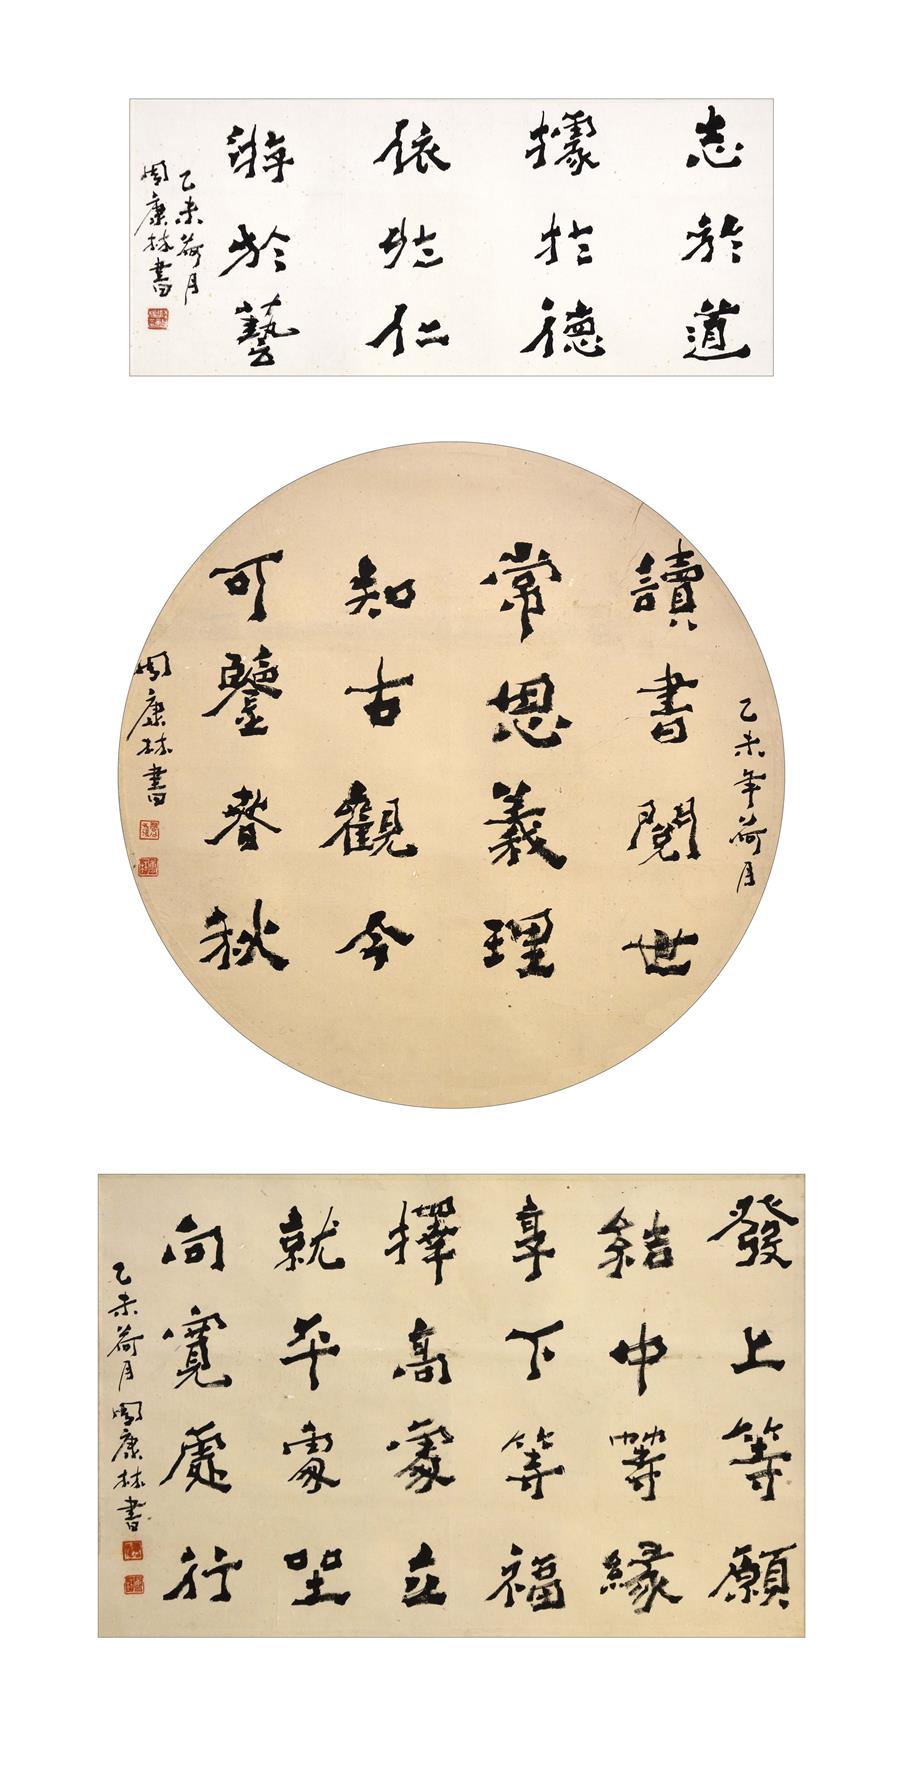 志於道
據於德
依於仁
游於藝
乙未荷月
周康林書
乙未年荷月
讀書閱世
常思義理
知古觀今
可鑒春秋
周康林書
發上等願
結中等緣
享下等福
擇高處立
就平處坐
向寬處行
乙未荷月周康林書